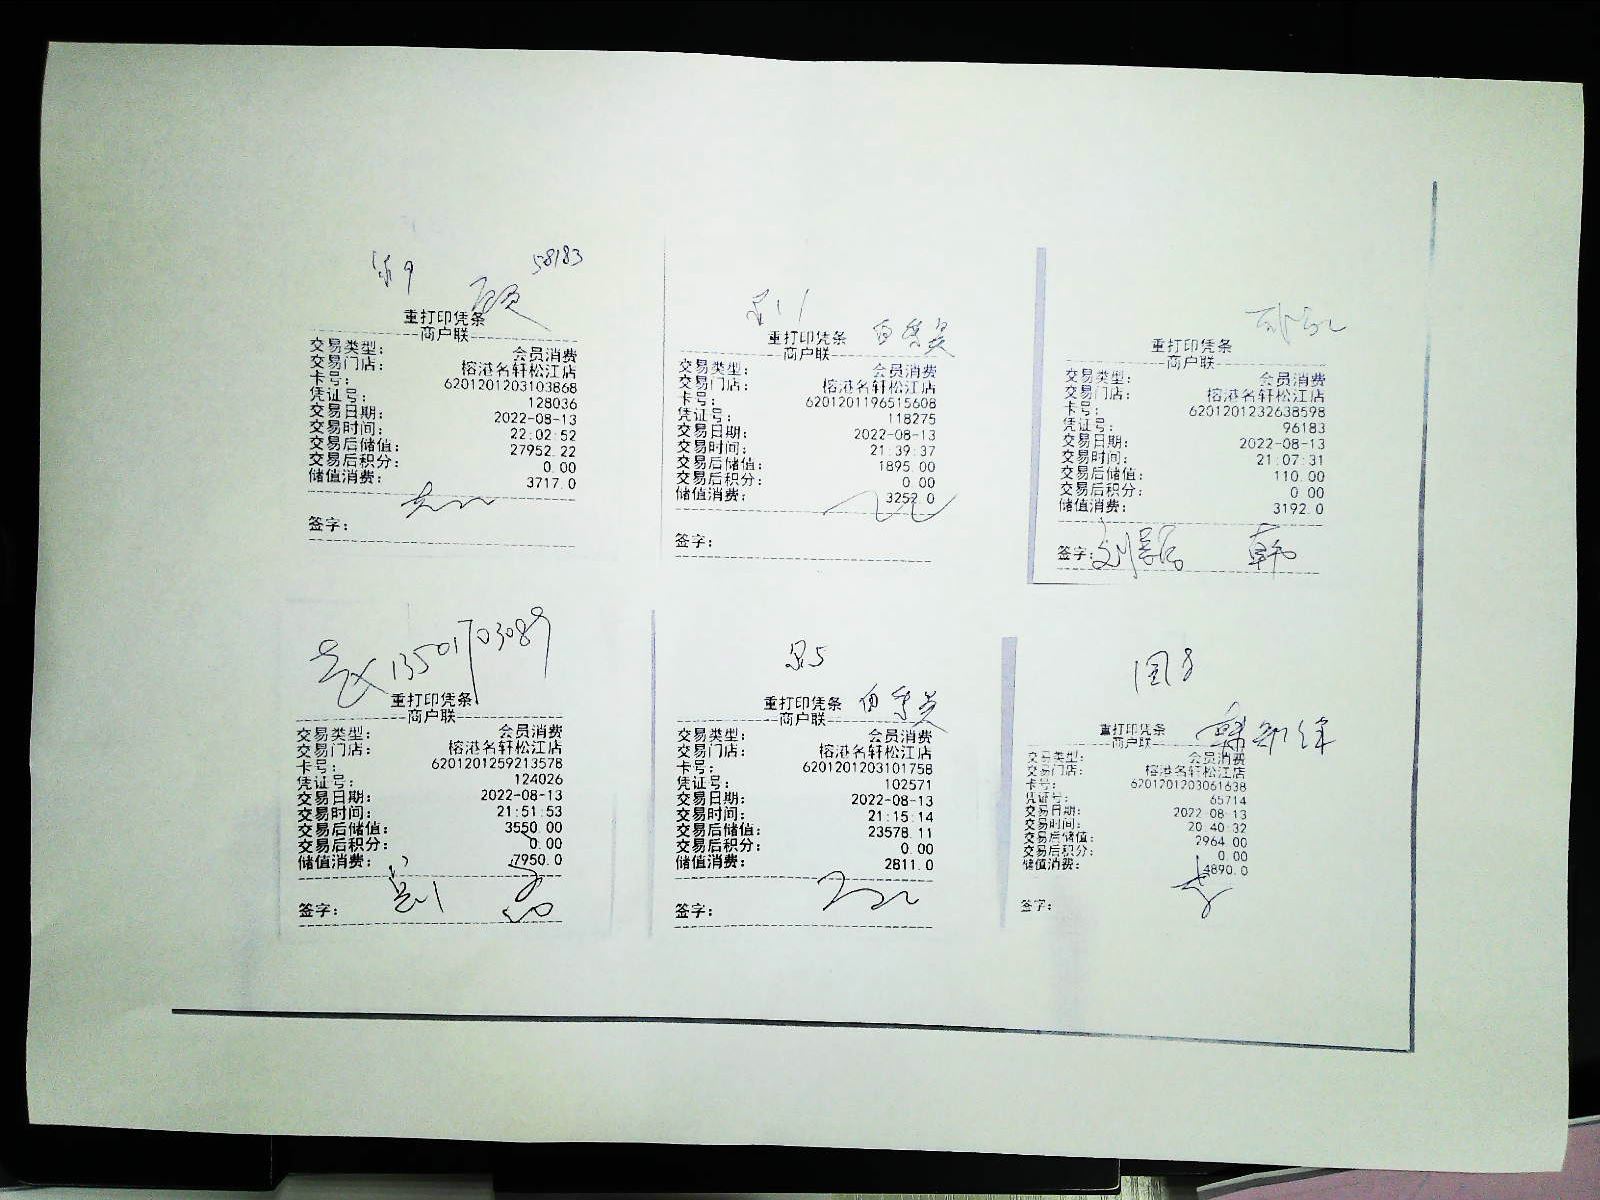 58183
重打印凭条
商户联
交易类型： 会员消费
交易门店： 榕港名轩松江店
卡号： 6201201203103868
凭证号： 128036
交易日期： 2022-08-13
交易时间： 22:02:52
交易后储值： 27952.22
交易后积分： 0.00
储值消费： 3717.0
签字：
重打印凭条
商户联
交易类型： 会员消费
交易门店： 榕港名轩松江店
卡号： 6201201196515608
凭证号： 118275
交易日期： 2022-08-13
交易时间： 21:39:37
交易后储值： 1895.00
交易后积分： 0.00
储值消费： 3252.0
签字：
重打印凭条
商户联
交易类型： 会员消费
交易门店： 榕港名轩松江店
卡号： 6201201232638598
凭证号： 96183
交易日期： 2022-08-13
交易时间： 21:07:31
交易后储值： 110.00
交易后积分： 0.00
储值消费： 3192.0
签字： 韩
13501703089
重打印凭条
商户联
交易类型： 会员消费
交易门店： 榕港名轩松江店
卡号： 6201201259213578
凭证号： 124026
交易日期： 2022-08-13
交易时间： 21:51:53
交易后储值： 3550.00
交易后积分： 0.00
储值消费： 7950.0
签字：
重打印凭条
商户联
交易类型： 会员消费
交易门店： 榕港名轩松江店
卡号： 6201201203101758
凭证号： 102571
交易日期： 2022-08-13
交易时间： 21:15:14
交易后储值： 23578.11
交易后积分： 0.00
储值消费： 2811.0
签字：
国8
重打印凭条
商户联
交易类型： 会员消费
交易门店： 榕港名轩松江店
卡号： 6201201203061638
凭证号： 65714
交易日期： 2022-08-13
交易时间： 20:40:32
交易后储值： 2964.00
交易后积分： 0.00
储值消费： 4890.0
签字：